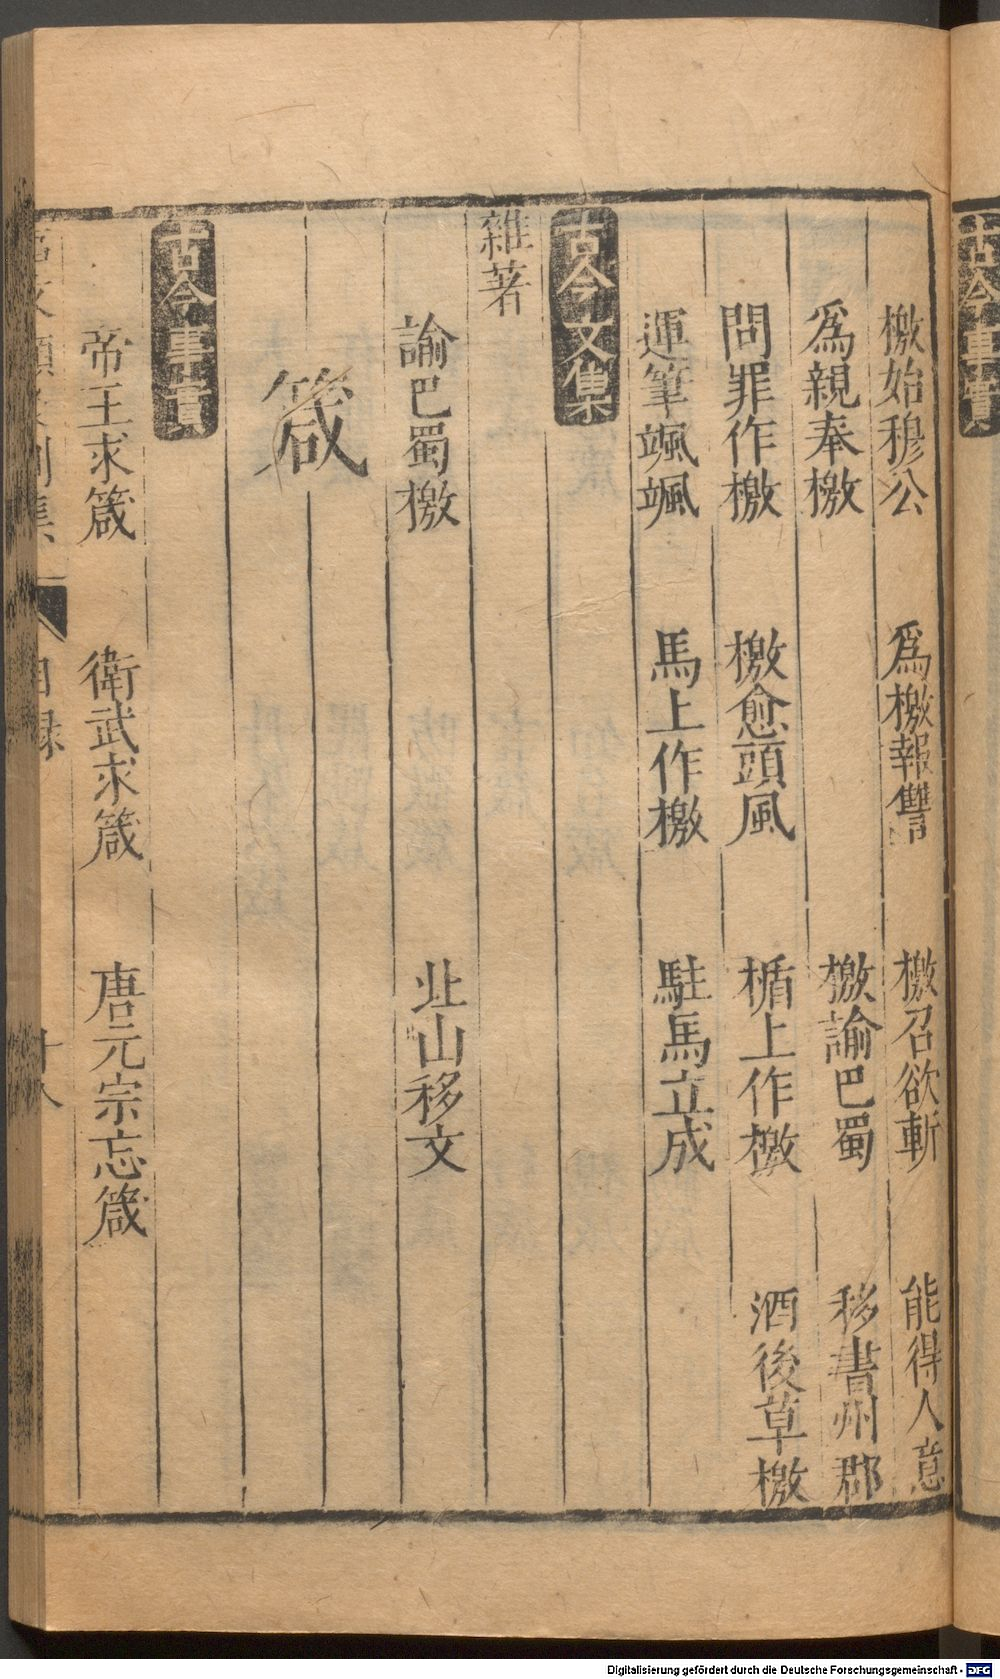 檄始穆公　爲檄報讐　檄召欲斬　能得人意
爲親奉檄　檄諭巴蜀　移書州郡
問罪作檄　檄愈頭風　楯上作檄　酒後草檄
運筆颯颯　馬上作檄　駐馬立成
古今文集
雜著
諭巴蜀檄　北山移文
箴
古今事實
帝王求箴　衛武求箴　唐元宗忘箴
目録
古今事實
Digitalisierung gefördert durch die Deutsche Forschungsgemeinschaft - DFG